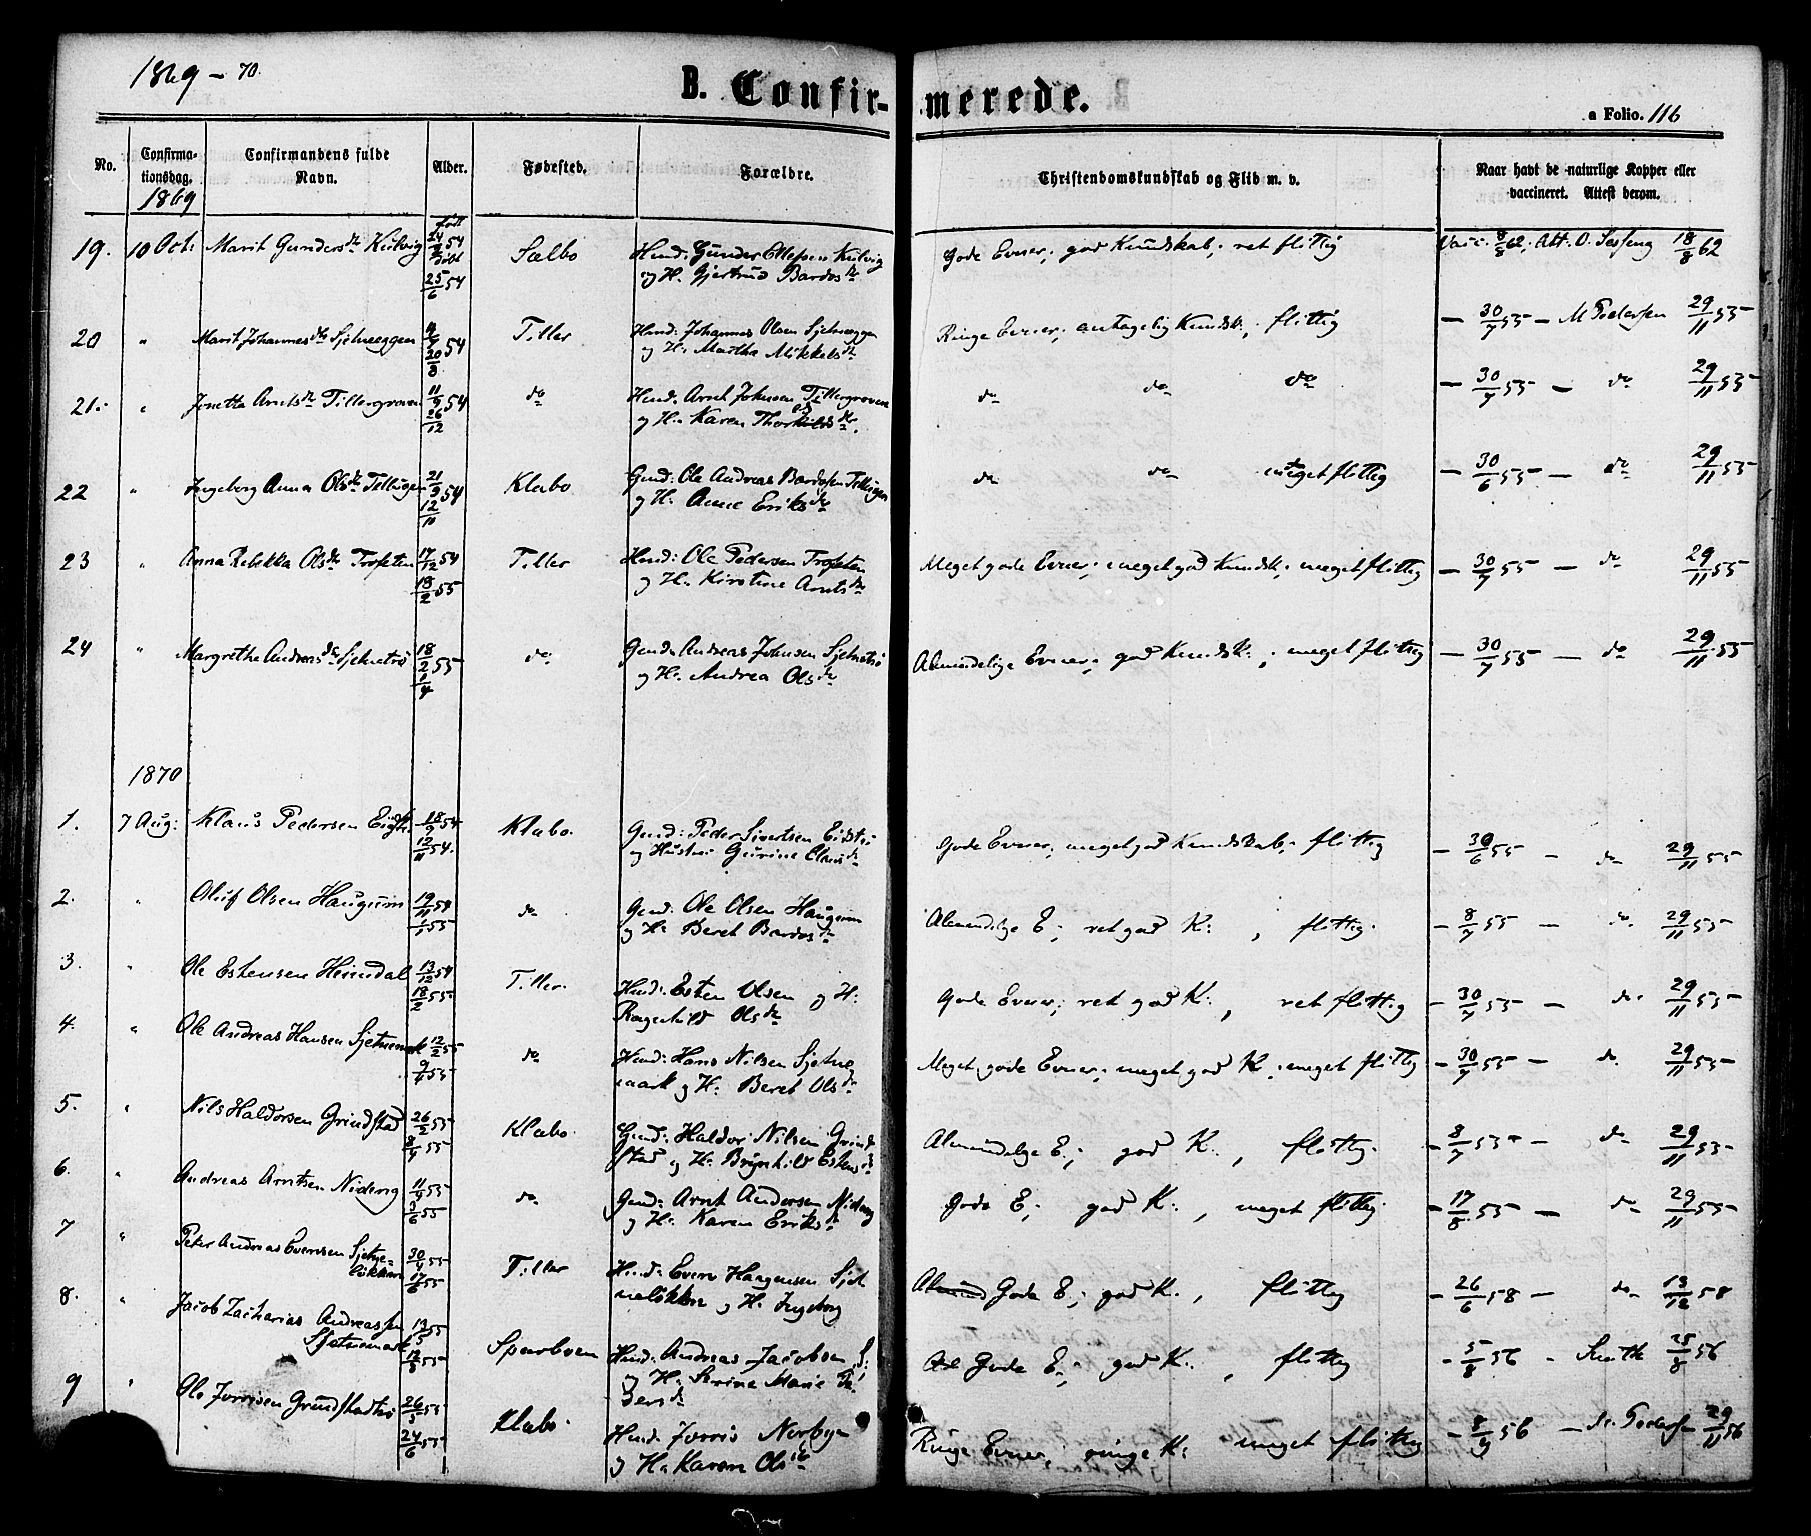 1869 - 70.
B. Confir-
merede.
a Folio. 116
No.
Confirma-
tionsdag.
1869
Confirmandens fulde
Navn.
Alder.
Fødested.
Forældre.
Christendomskundskab og Flid m. v.
Naar havt de naturlige Kopper eller
vaccineret. Attest derom.
19. 10 Oct: Marit Gundersdr Kulvig født 24/3 54 døbt 25/6 54 Sælbo Hmd: Gunder Ellefsen Kulvig
og H. Gjertrud Bardosdr
Gode Evner; god Kundskab; ret flittig
Vacc. 8/8 62; Att. O. 18/8 62
20 " Marit Johannesdr 54 20/8 Tiller Hmd: Johannes Olsen
og H. Martha Mikkelsdr
Ringe Evner; antagelig Kundsk.; flittig
- 30/7 55 - M Pedersen 29/11 55
21. " Jonetta Arntsdr Tillergroven 11/9 54 26/12 do Hmd. Arnt Johnsen Tillergroven
og H. Karen
do do do
- 30/7 55 - do 29/11 55
22 " Ingeborg Anna Olsdr Tellugen 21/9 54 12/10 Klæbo Gmd: Ole Andreas Bardosen Tellugen
og H. Anne Eriksdr
do do meget flittig
- 30/6 55 - do 29/11 55
23 " Anna Rebekka Olsdr Trosten 17/12 54 18/2 55 Tiller Hmd: Ole Pedersen Trosten
og H. Kirstine Arntsdr
Meget gode Evner; meget god Kundsk; meget flittig
- 30/7 55 - do 29/11 55
24 " Margrethe Andreasdr Sjetnetrø 18/2 55 1/4 do Gmd: Andreas Johnsen Sjetnetrø
og H. Andrea Olsdr
Almindelige Evner; god Kundsk.; meget flittig
- 30/7 55 - do 29/11 55
1870
1. 7 Aug: Klaus Pedersen 18/9 54 12/11 54. Klæbo. Gmd: Peder Sivertsen
og Hustru Gurine Clausdr
Gode Evner; meget god Kundskab; flittig
- 30/6 55 - do 29/11 55
2. " Oluf Olsen Haugum 19/11 54 1/1 55 do Gmd: Ole Olsen Haugum
og H. Beret Bardosdr
Almindelge E.; ret god K:, flittig.
- 8/7 55 - do. 29/11 55
3. " Ole Estensen Heimdal 13/12 54 18/2 55 Tiller. Hmd: Esten Olsen og H:
Ragnhild Olsdr
Gode Evner; ret god K:, ret flittig
- 30/7 55 - do. 29/11 55
4. " Ole Andreas Hansen Sjetnemark 12/2 55 9/4 55 do Hmd: Hans Nilsen Sjetne
mark og H. Beret Olsdr
Meget gode Evner; meget god K.; meget flittig
- 30/7 55 - do 29/11 55
5. " Nils Haldorsen Grindstad 26/2 55 8/4 55 Klæbo Gmd: Haldor Nilsen Grind
stad og H. Brynhild Estensdr
Almindelge E.; god K., flittig.
- 8/7 55 - do 29/11 55
6. " Andreas Arntsen Nideng 11/4 55 3/6 55 do Gmd: Arnt Andersen Nideng
og H. Karen Eriksdr
Gode E; god K:, meget flittig.
- 17/8 55 - do 29/11 55
7 " Peter Andreas Evensen Sjetne-
løkken 30/4 55 17/6 55 Tiller Hmd: Even Haagensen Sjet
neløkken og H. Ingeborg
Almind Gode E.; god K., flittig
- 26/6 58 - do 13/12 58
8. " Jacob Zacharias Andreassen
Sjetnemark 13/5 55 12/8 55 Sparboen Hmd: Andreas Jacobsen S:
og H. Serine Marie Pe-
dersdr
Gode E.; god K., flittig
- 5/8 56 - 25/8 56
9 " Ole Jorrisen Grindstadtrø 26/5 55 24/6 55 Klæbo. Hmd: Jorris Norbye
og H. Karen Olsdr
Ringe Evner; ringe K: meget flittig
56 - 29/11 56